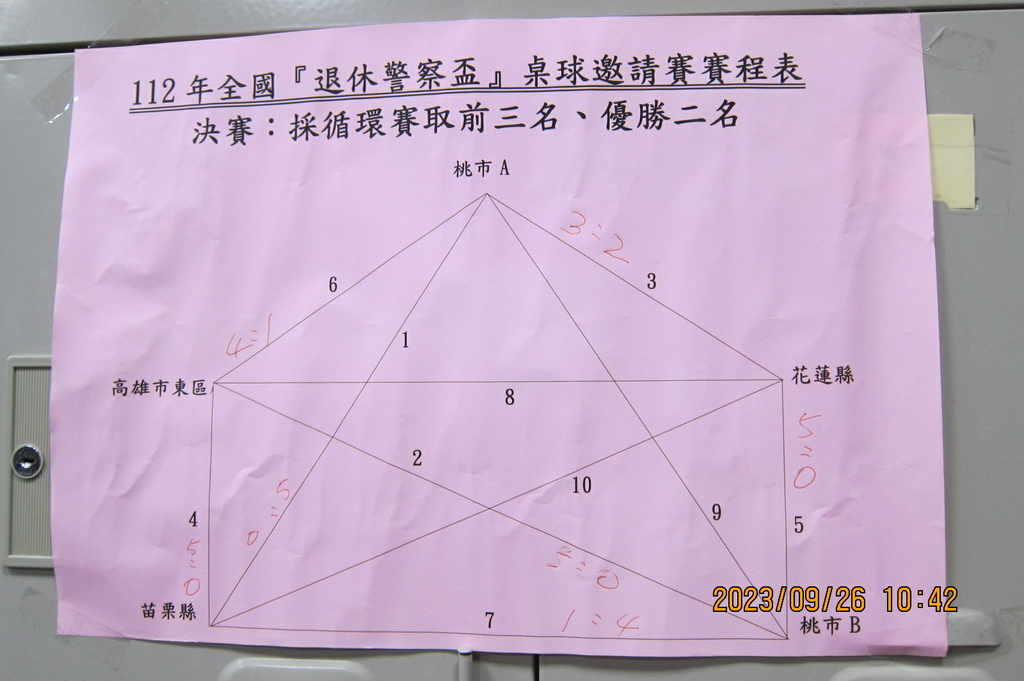 112年全國『退休警察盃』桌球邀請賽賽程表
決賽：採循環賽取前三名、優勝二名
桃市A
3:2
6
3
4:1
1
高雄市東區
花蓮縣
8
5:0
2
10
5:0
4
9
5
5:0
5:0
2023/09/26 10:42
苗栗縣
7
1:4
桃市B